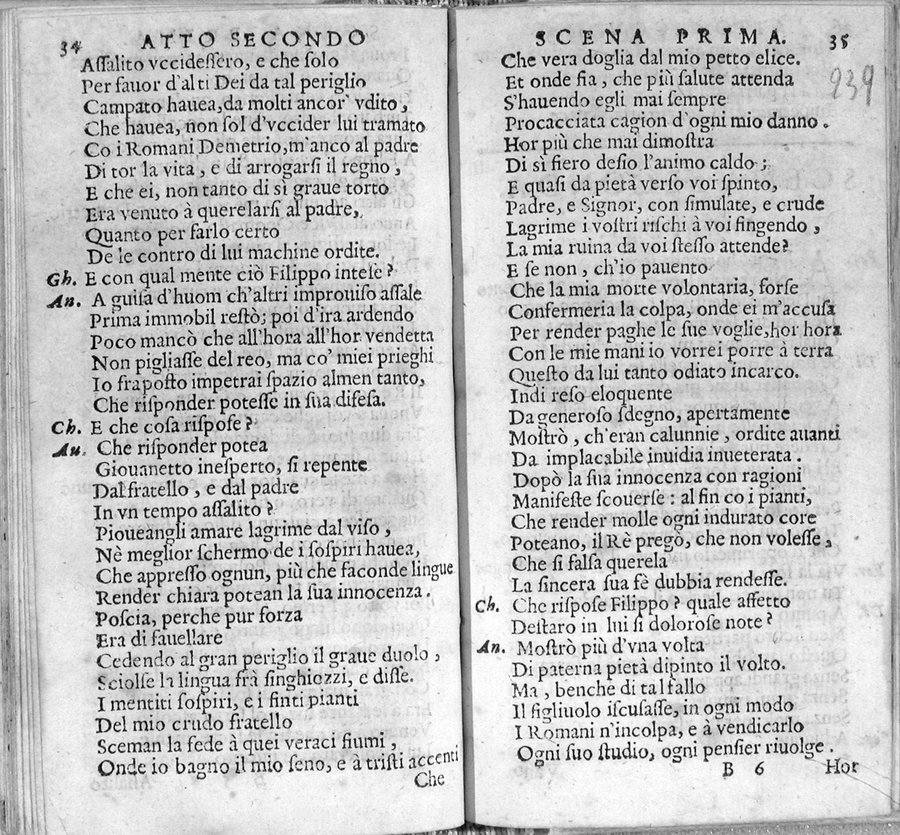 34 ATTO SECONDO
Aſſalito vccideſſero, e che ſolo
Per fauor d'alti Dei da tal periglio
Campato hauea, da molti ancor vdito,
Che hauea, non ſol d'vccider lui tramato
Co i Romani Demetrio, m'anco al padre
Di tor la vita, e di arrogarſi il regno,
E che ei, non tanto di sì graue torto
Era venuto à querelarſi al padre,
Quanto per farlo certo
De le contro di lui machine ordite.
Gh. E con qual mente ciò Filippo inteſe?
An. A guiſa d'huom ch'altri improuiſo aſſale
Prima immobil reſtò; poi d'ira ardendo
Poco mancò che all'hora all'hor vendetta
Non pigliaſſe del reo, ma co' miei prieghi
Io frapoſto impetrai ſpazio almen tanto,
Che riſponder poteſſe in ſua difeſa.
Ch. E che coſa riſpoſe?
An. Che riſponder potea
Giouanetto ineſperto, ſi repente
Dal fratello, e dal padre
In vn tempo aſſalito?
Pioueangli amare lagrime dal viſo,
Nè meglior ſchermo de i ſoſpiri hauea,
Che appreſſo ognun, più che faconde lingue
Render chiara potean la ſua innocenza.
Poſcia, perche pur forza
Era di fauellare
Cedendo al gran periglio il graue duolo,
Sciolſe la lingua frà ſinghiozzi, e diſſe.
I mentiti ſoſpiri, e i finti pianti
Del mio crudo fratello
Sceman la fede à quei veraci fiumi,
Onde io bagno il mio ſeno, e à triſti accenti
Che
SCENA PRIMA. 35
239
Che vera doglia dal mio petto elice.
Et onde fia, che più ſalute attenda
S'hauendo egli mai ſempre
Procacciata cagion d'ogni mio danno.
Hor più che mai dimoſtra
Di sì fiero deſio l'animo caldo;
E quaſi da pietà verſo voi ſpinto,
Padre, e Signor, con ſimulate, e crude
Lagrime i voſtri riſchi à voi fingendo,
La mia ruina da voi ſteſſo attende?
E ſe non, ch'io pauento
Che la mia morte volontaria, forſe
Confermeria la colpa, onde ei m'accuſa
Per render paghe le ſue voglie, hor hora
Con le mie mani io vorrei porre à terra
Queſto da lui tanto odiato incarco.
Indi reſo eloquente
Da generoſo ſdegno, apertamente
Moſtrò, ch'eran calunnie, ordite auanti
Da implacabile inuidia inueterata.
Dopò la ſua innocenza con ragioni
Manifeſte ſcouerſe: al fin co i pianti,
Che render molle ogni indurato core
Poteano, il Rè pregò, che non voleſſe,
Che ſi falſa querela
La sincera ſua fè dubbia rendeſſe.
Ch. Che riſpoſe Filippo? quale affetto
Deſtaro in lui ſi doloroſe note?
An. Moſtrò più d'vna volta
Di paterna pietà dipinto il volto.
Ma, benche di tal fallo
Il figliuolo iſcuſaſſe, in ogni modo
I Romani n'incolpa, e à vendicarlo
Ogni ſuo ſtudio, ogni penſier riuolge.
B 6 Hor